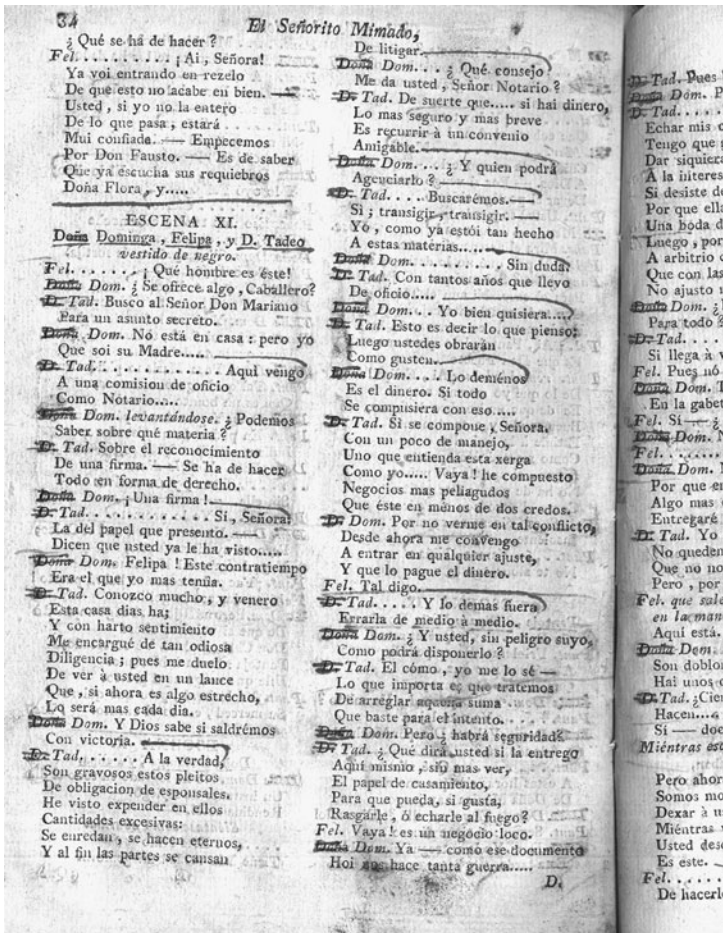 34
El Señorito Mimado,
¿ Qué se ha de hacer ?
Fel. . . . . . . . . . ¡ Ai , Señora!
Ya voi entrando en rezelo
De que esto no acabe en bien. —
Usted , si yo no la entero
De lo que pasa , estará
Mui confiada. — Empecemos
Por Don Fausto. — Es de saber
Que ya escucha sus requiebros
Doña Flora , y.....
ESCENA XI.
Doña Dominga , Felipa , y D. Tadeo
vestido de negro.
Fel. . . . . . , ¡ Qué hombre es éste!
Doña Dom. ¿ Se ofrece algo , Caballero?
D. Tad. Busco al Señor Don Mariano
Para un asunto secreto.
Doña Dom. No está en casa : pero yo
Que soi su Madre.....
D. Tad. . . . . . . . . . . . Aquí vengo
A una comision de oficio
Como Notario.....
Doña Dom. levantándose. ¿ Podemos
Saber sobre qué materia ?
D. Tad. Sobre el reconocimiento
De una firma. — Se ha de hacer
Todo en forma de derecho.
Doña Dom. ¡ Una firma !
D. Tad. . . . . . . . . . . . Sí , Señora!
La del papel que presento. —
Dicen que usted ya le ha visto.....
Doña Dom. Felipa ! Este contratiempo
Era el que yo mas temia.
D. Tad. Conozco mucho , y venero
Esta casa dias ha;
Y con harto sentimiento
Me encargué de tan odiosa
Diligencia ; pues me duelo
De ver à usted en un lance
Que , si ahora es algo estrecho,
Lo será mas cada dia.
Doña Dom. Y Dios sabe si saldrémos
Con victoria.
D. Tad. . . . . . A la verdad,
Son gravosos estos pleitos
De obligacion de esponsales.
He visto expender en ellos
Cantidades excesivas:
Se enredan , se hacen eternos,
Y al fin las partes se cansan
De litigar.
Doña Dom. . . ¿ Qué consejo
Me da usted , Señor Notario ?
D. Tad. De suerte que..... si hai dinero,
Lo mas seguro y mas breve
Es recurrir à un convenio
Amigable.
Doña Dom. . . . ¿ Y quien podrá
Agenciarlo ?
D. Tad. . . . . Buscarémos. —
Sí ; transigir , transigir. —
Yo , como ya estói tan hecho
A estas materias.....
Doña Dom. . . . . . . . . Sin duda?
D. Tad. Con tantos años que llevo
De oficio.....
Doña Dom. . . Yo bien quisiera....
D. Tad. Esto es decir lo que pienso;
Luego ustedes obrarán
Como gusten.
Doña Dom. . . . Lo de ménos
Es el dinero. Si todo
Se compusiera con eso.....
D. Tad. Si se compone , Señora.
Con un poco de manejo,
Uno que entienda esta xerga
Como yo..... Vaya ! he compuesto
Negocios mas peliagudos
Que éste en ménos de dos credos.
D. Dom. Por no verme en tal conflicto,
Desde ahora me convengo
A entrar en qualquier ajuste,
Y que lo pague el dinero.
Fel. Tal digo.
D. Tad. . . . . Y lo demas fuera
Errarla de medio à medio.
Doña Dom. ¿ Y usted, sin peligro suyo,
Como podrá disponerlo ?
D. Tad. El cómo , yo me lo sé —
Lo que importa es que tratemos
De arreglar aquella suma
Que baste para el intento.
Doña Dom. Pero ¿ habrá seguridad?
D. Tad. ¿ Qué dirá usted si la entrego
Aquí mismo , sin mas ver,
El papel de casamiento,
Para que pueda, si gusta,
Rasgarle , ó echarle al fuego ?
Fel. Vaya ! es un negocio loco.
Doña Dom. Ya — como ese documento
Hoi nos hace tanta guerra.....
D.
D. Tad. Pues
Doña Dom. P
D. Tad. . . .
Echar mis
Tengo que
Dar siquiera
A la interes
Si desiste de
Por que ella
Una boda d
Luego , por
A arbitrio
Que con las
No ajusto
Doña Dom. ¿
Para todo ?
D. Tad. . . .
Si llega à v
Fel. Pues nó
Doña Dom.
En la gabet
Fel. Sí — ¿
Doña Dom. N
Fel. . . . . .
Doña Dom.
Por que en
Algo mas
Entregaré
D. Tad. Yo
No queden
Que no no
Pero , por
Fel. que sale
en la man
Aquí está.
Doña Dom.
Son doblon
Hai unos
D. Tad. ¿Cien
Hacen....
Sí — doc
Miéntras es
Pero ahor
Somos mo
Dexar à u
Miéntras
Usted des
Es este. —
Fel. . . . .
De hacerl